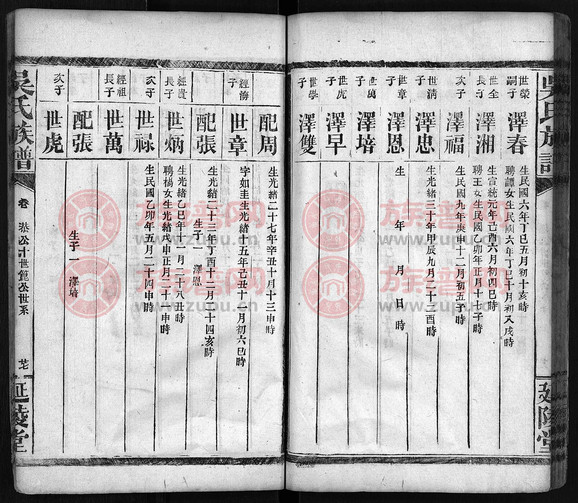 世榮
嗣子
澤春
生民國六年丁巳五月初十亥時
聘譚女生民國六年丁巳十月初又戌時
世全
長子
澤湘
生宣統元年己酉六月初四巳時
聘王女生民國乙卯年正月十七子時
次子
澤福
生民國九年庚申十二月初五子時
世清
子
澤忠
生光緒三十年甲辰九月二十三酉時
世章
子
澤恩
生 年 月 日 時
世萬
子
澤培
世虎
子
澤早
世學
子
澤雙
配周
生光緒二十七年辛丑十月十三申時
經海
子
世章
字如圭生光緒十五年己丑十一月初六巳時
配張
生光緒二十三年丁酉十二月二十四亥時
生子一 澤恩
經貴
長子
世炳
生光緒乙巳年十二月二十八丑時
聘楊女生光緒戊申年正月二十申時
次子
世祿
生民國乙卯年五月二十四申時
經祖
長子
世萬
配張
生子一 澤培
次子
世虎
吳氏族譜
卷
世系
延陵堂
吳氏族譜
延陵堂
族譜网
www.zupu.cn
族譜网
www.zupu.cn
族譜网
www.zupu.cn
族譜网
www.zupu.cn